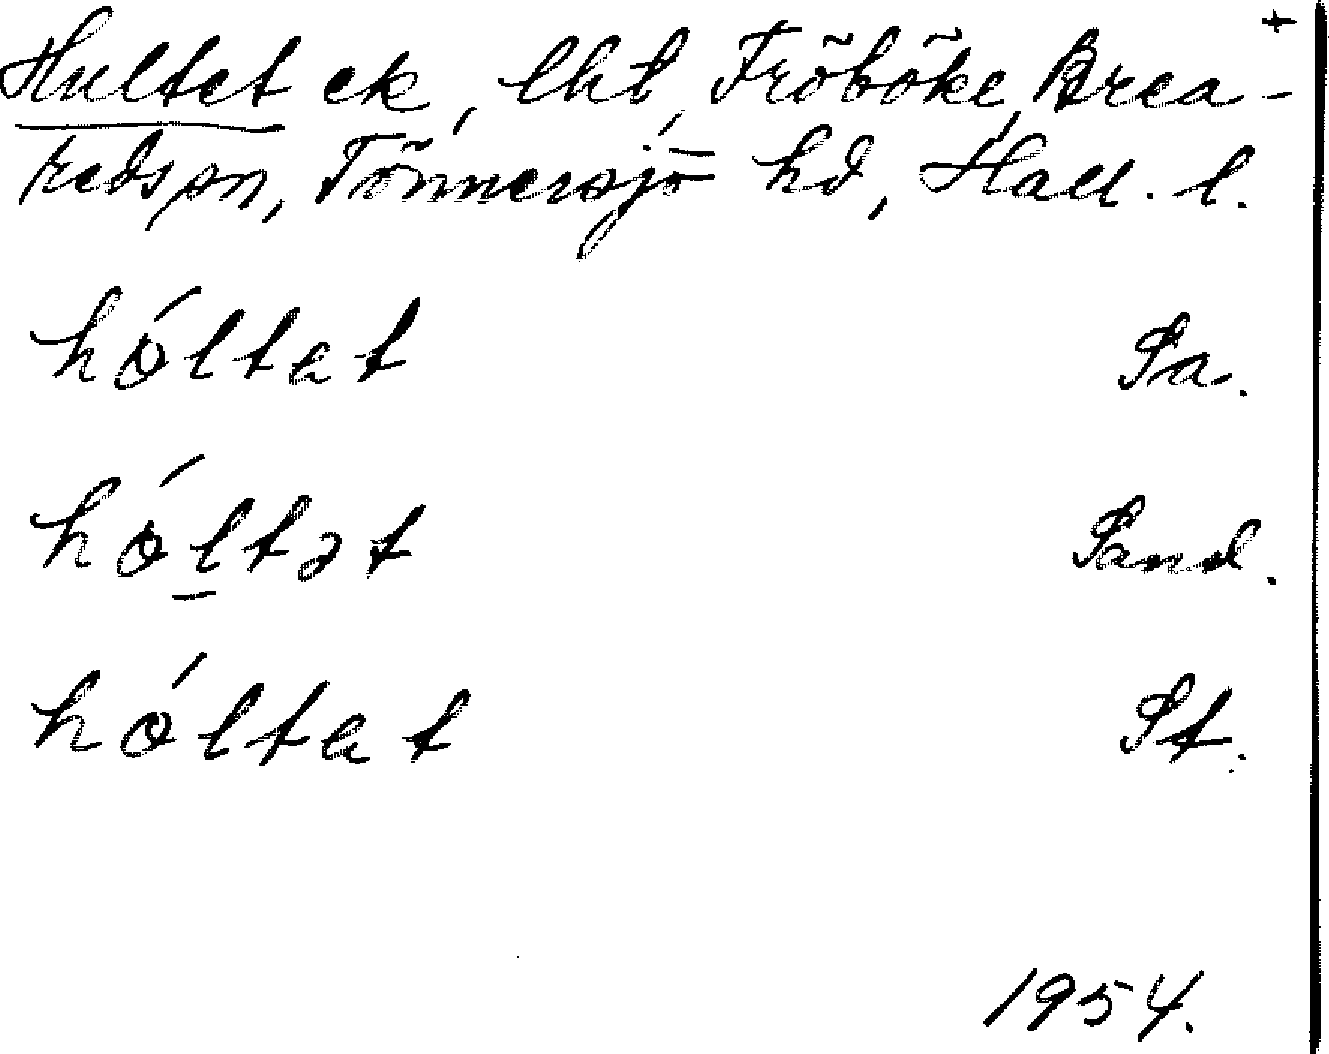 +
Hultet ek, lht, Fröböke, Brea-
reds sn, Tönnersjö hd, Hall. l.
hóltat Sa.
hóltət Sand.
hóltat St.
1954.